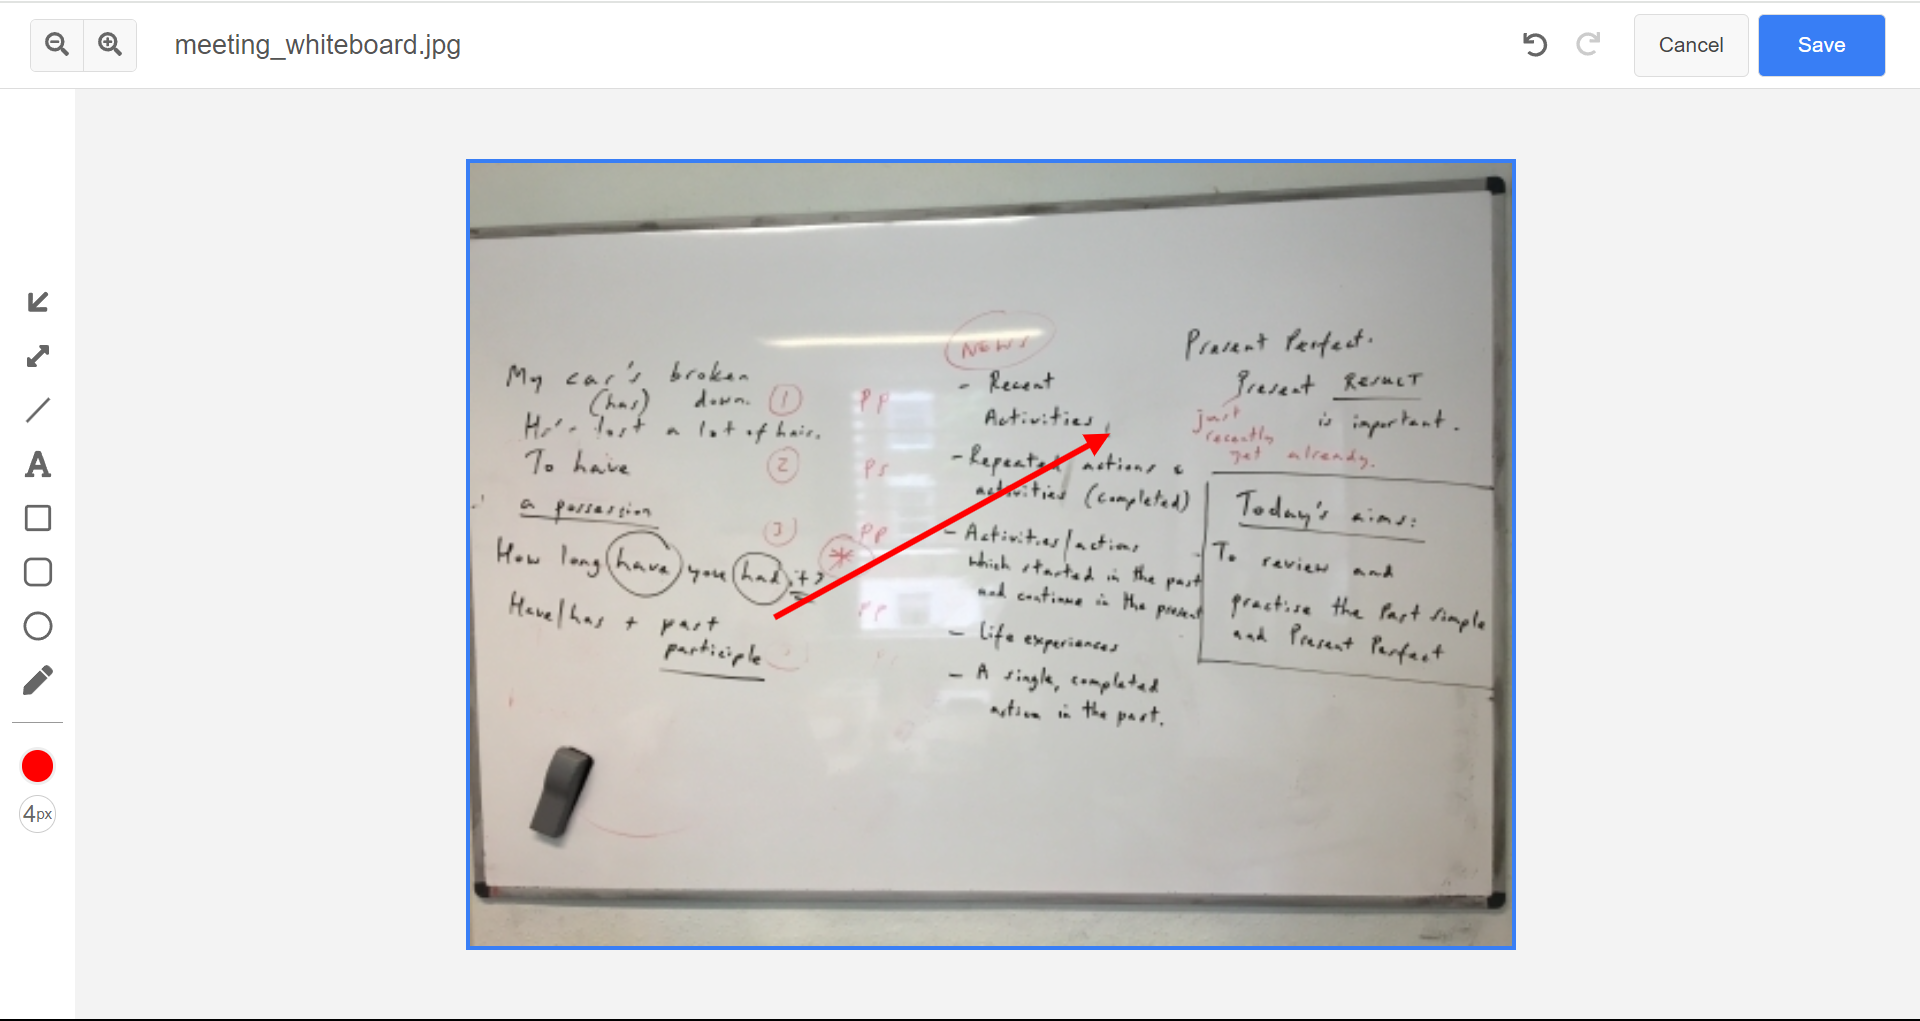 meeting_whiteboard.jpg
Cancel
Save
A
4px
My car's broken
(has) down.
He's lost a lot of hair.
To have
a possession
How long have you had it?
Have/has + past
participle
1
PP
2
PS
3
PP
*
PP
NEWS
- Recent
Activities
- Repeated actions &
activities (completed)
- Activities/actions
which started in the past
and continue in the present
- Life experiences
- A single, completed
action in the past.
Present Perfect.
Present RESULT
is important.
just
recently
yet already.
Today's aims:
- To review and
practise the Past Simple
and Present Perfect